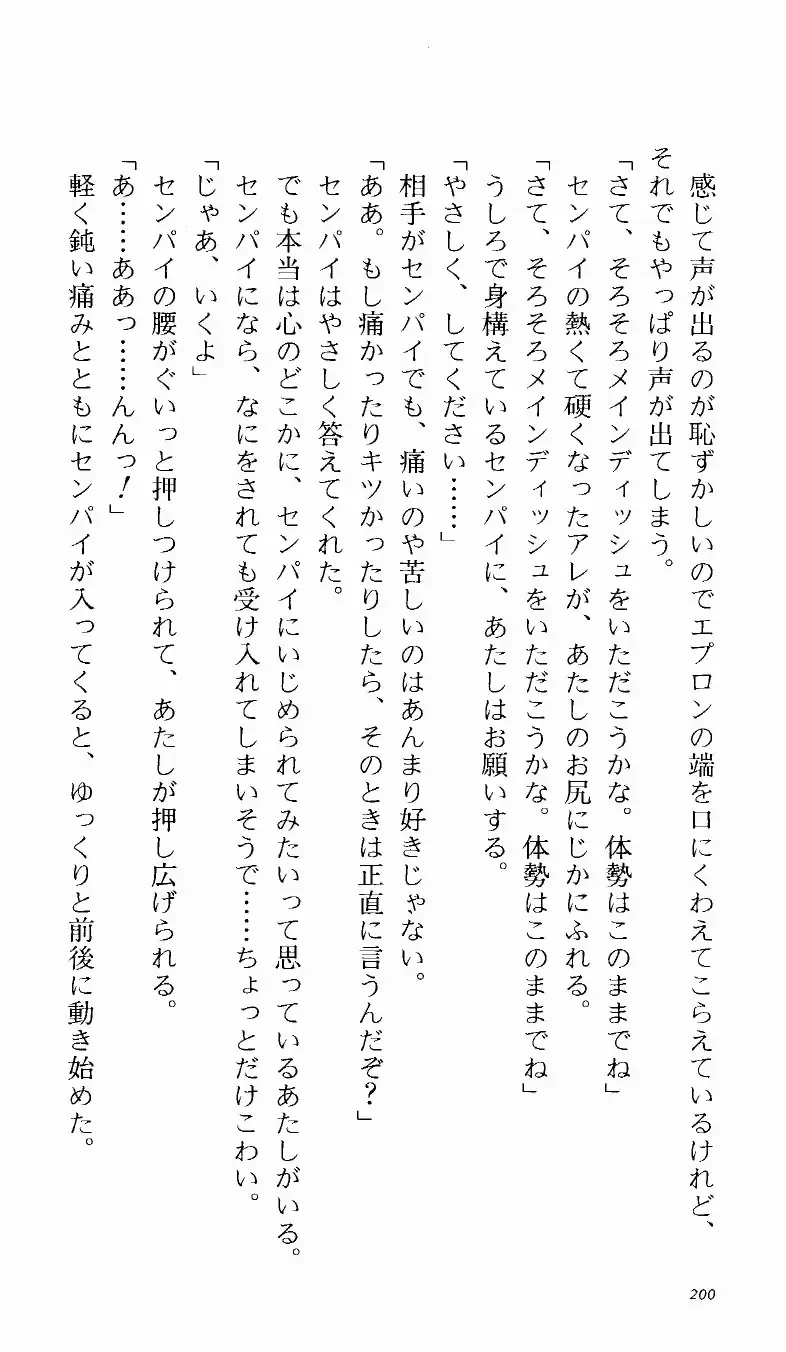 感じて声が出るのが恥ずかしいのでエプロンの端を口にくわえてこらえているけれど、
それでもやっぱり声が出てしまう。
「さて、そろそろメインディッシュをいただこうかな。体勢はこのままでね」
センパイの熱くて硬くなったアレが、あたしのお尻にじかにふれる。
「さて、そろそろメインディッシュをいただこうかな。体勢はこのままでね」
うしろで身構えているセンパイに、あたしはお願いする。
「やさしく、してください……」
相手がセンパイでも、痛いのや苦しいのはあんまり好きじゃない。
「ああ。もし痛かったりキツかったりしたら、そのときは正直に言うんだぞ？」
センパイはやさしく答えてくれた。
でも本当は心のどこかに、センパイにいじめられてみたいって思っているあたしがいる。
センパイになら、なにをされても受け入れてしまいそうで……ちょっとだけこわい。
「じゃあ、いくよ」
センパイの腰がぐいっと押しつけられて、あたしが押し広げられる。
「あ……ああっ……んんっ！」
軽く鈍い痛みとともにセンパイが入ってくると、ゆっくりと前後に動き始めた。
200